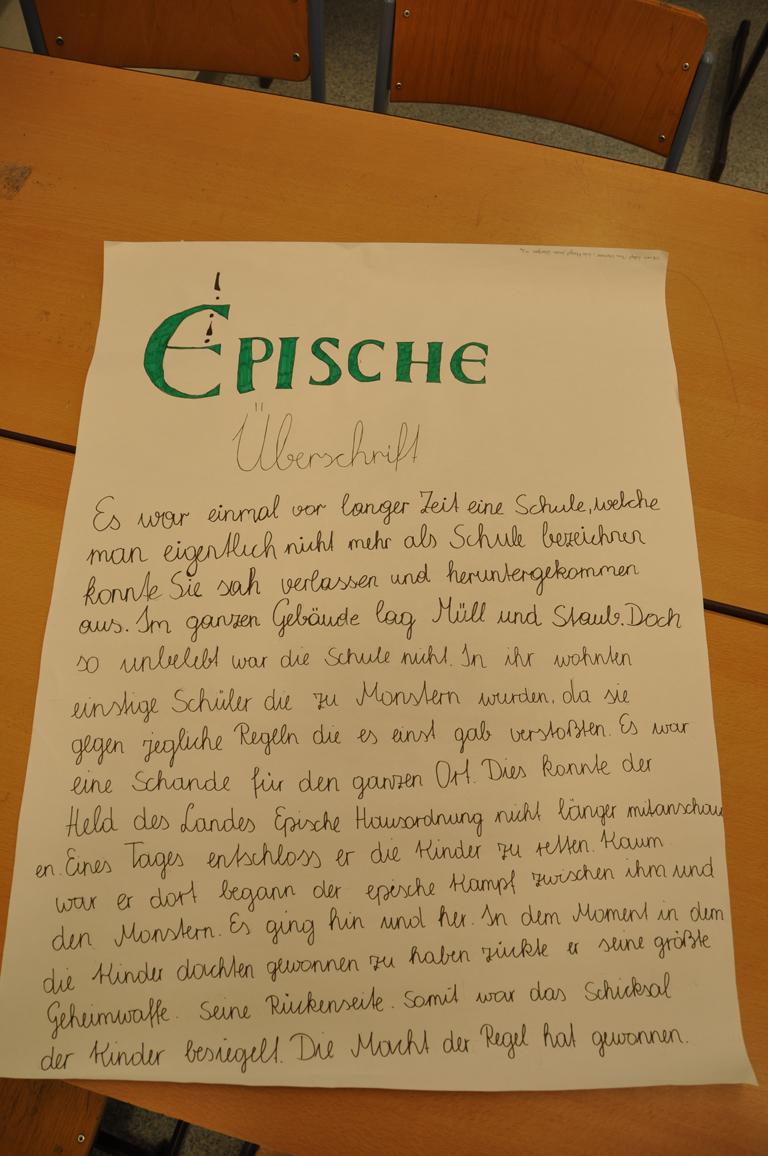 EPISCHE
Überschrift
Es war einmal vor langer Zeit eine Schule, welche
man eigentlich nicht mehr als Schule bezeichnen
konnte Sie sah verlassen und heruntergekommen
aus. Im ganzen Gebäude lag Müll und Staub. Doch
so unbelebt war die Schule nicht. In ihr wohnten
einstige Schüler die zu Monstern wurden, da sie
gegen jegliche Regeln die es einst gab verstoßten. Es war
eine Schande für den ganzen Ort. Dies konnte der
Held des Landes Epische Hausordnung nicht länger mitanschau
en. Eines Tages entschloss er die Kinder zu retten. Kaum
war er dort begann der epische Kampf zwischen ihm und
den Monstern. Es ging hin und her. In dem Moment in dem
die Kinder dachten gewonnen zu haben zückte er seine größte
Geheimwaffe. Seine Rückenseite. Somit war das Schicksal
der Kinder besiegelt. Die Macht der Regel hat gewonnen.